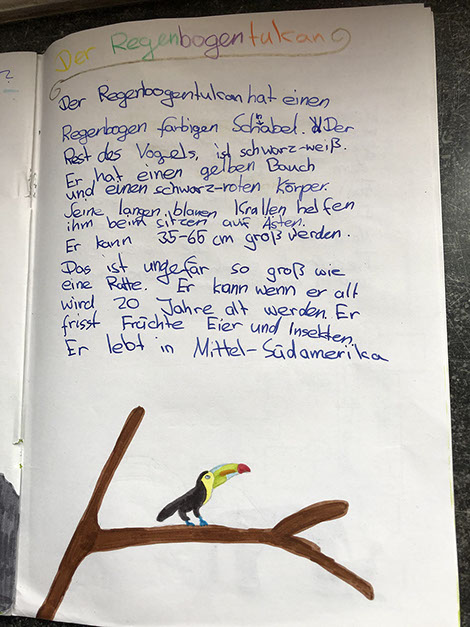 Der Regenbogentukan
Der Regenbogentukan hat einen
Regenbogen farbigen Schnabel. Der
Rest des Vogels, ist schwarz-weiß.
Er hat einen gelben Bauch
und einen schwarz-roten Körper.
Seine langen, blauen Krallen helfen
ihm beim sitzen auf Ästen.
Er kann 35-65 cm groß werden.
Das ist ungefär so groß wie
eine Ratte. Er kann wenn er alt
wird 20 Jahre alt werden. Er
frisst Früchte Eier und Insekten.
Er lebt in Mittel-Südamerika